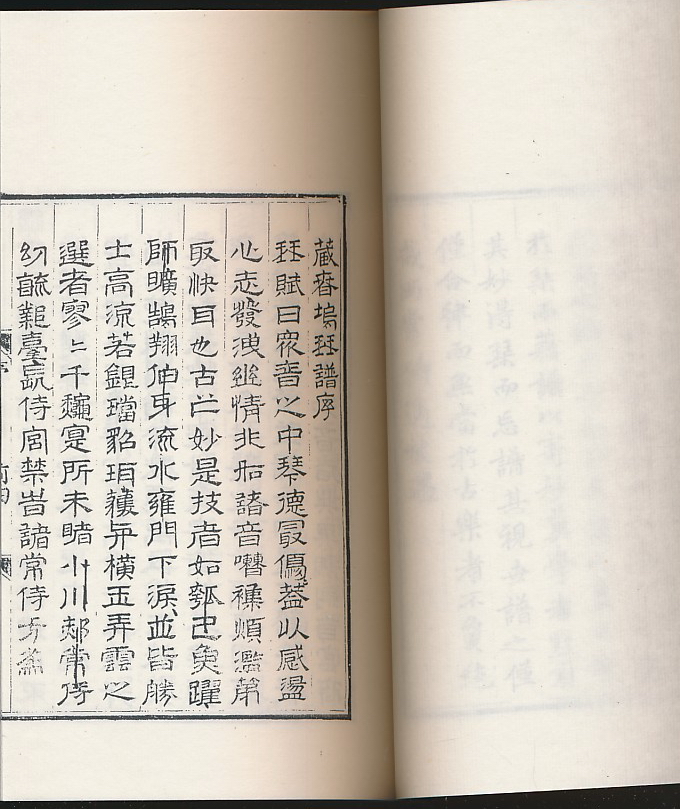 藏春塢琴譜序
琴賦曰衆音之中琴德最優蓋以感盪
心志發洩幽情非如諸音嘈襍煩濫第
取快耳也古之妙是技者如瓠巴魚躍
師曠鶴翔伯牙流水雍門下淚並皆勝
士高流若璫貂珥橫玉弄雲之
選者寥〻千龝寔所未睹小川郝常侍
幼毓臺侍宮禁昔諸常侍方蒸
序